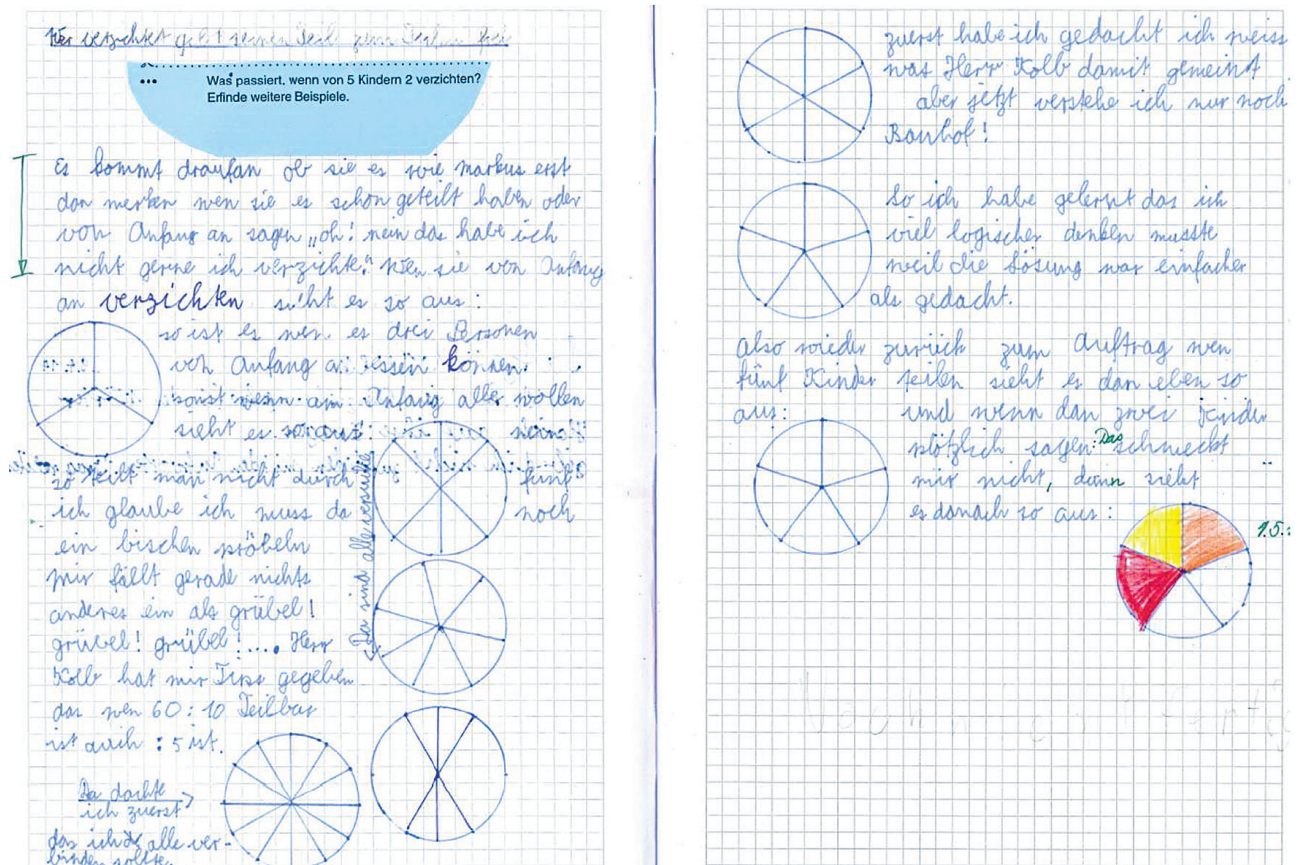 Wer verzichtet gibt seinen Teil zum Teilen frei
...
Was passiert, wenn von 5 Kindern 2 verzichten?
Erfinde weitere Beispiele.
Es kommt draufan ob sie es wie Markus erst
dan merken wen sie es schon geteilt haben oder
von Anfang an sagen „oh! nein das habe ich
nicht gerne ich verzichte." Wen sie von Anfang
an verzichten sieht es so aus:
so ist es wen es drei Personen
von Anfang an essen können.
sonst wenn am Anfang alle wollen
sieht es so aus:
so teilt man nicht durch fünf
ich glaube ich muss da noch
ein bischen pröbeln
mir fällt gerade nichts
anderes ein als grübel!
grübel! grübel!.... Herr
Kolb hat mir Tips gegeben
das wen 60:10 Teilbar
ist auch :5 ist.
Da sind alle versuche
Da dachte
ich zuerst
das ich alle ver-
binden sollte.
zuerst habe ich gedacht ich weiss
was Herr Kolb damit gemeint
aber jetzt verstehe ich nur noch
Banhof!
So ich habe gelernt das ich
viel logischer denken musste
weil die Lösung war einfacher
als gedacht.
also wieder zurück zum Auftrag wen
fünf Kinder teilen sieht es dan eben so
aus: und wenn dan zwei Kinder
plötzlich sagen Das schmeckt
mir nicht, dann sieht
es danach so aus:
1.5.: